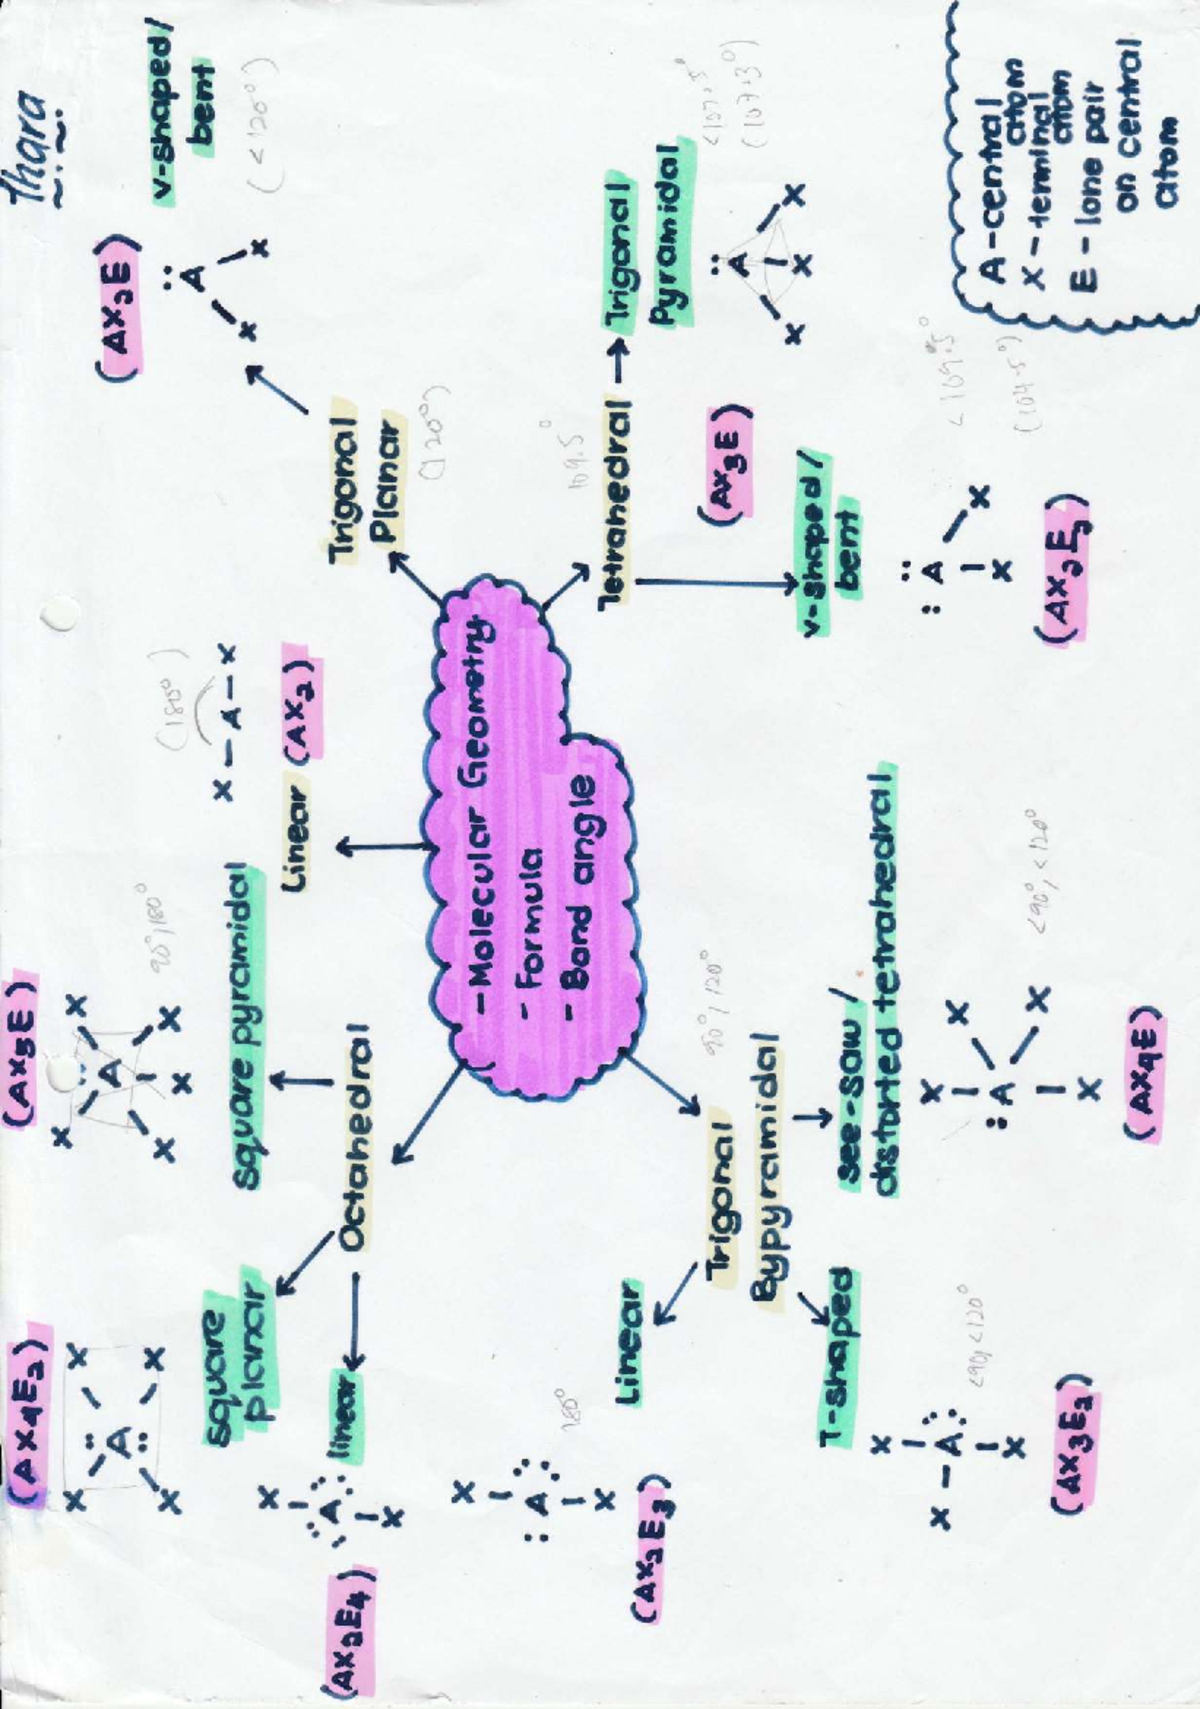 Thara
(AX5E)
90°,180°
X X
A
X X X
square pyramidal
(AX4E2)
X X
:A:
X X
square
planar
Octahedral
linear
X
A
X
(AX2E4)
(180°)
X-A-X
Linear (AX2)
(AX2E)
A
X X
v-shaped/
bent
(<120°)
Trigonal
Planar
(120°)
- Molecular Geometry
- Formula
- Bond angle
109.5°
Tetrahedral
Trigonal
Pyramidal
<109.5°
(107.3°)
A
X X X
(AX3E)
v-shaped/
bent
<109.5°
(104.5°)
A
X X
(AX2E2)
90°,120°
Trigonal
Bypyramidal
Linear
180°
X
:A
X
(AX2E3)
T-shaped
<90,<120°
X
X-A
X
(AX3E2)
see-saw/
distorted tetrahedral
<90°,<120°
X X
:A
X X
(AX4E)
A - central
atom
X - terminal
atom
E - lone pair
on central
atom